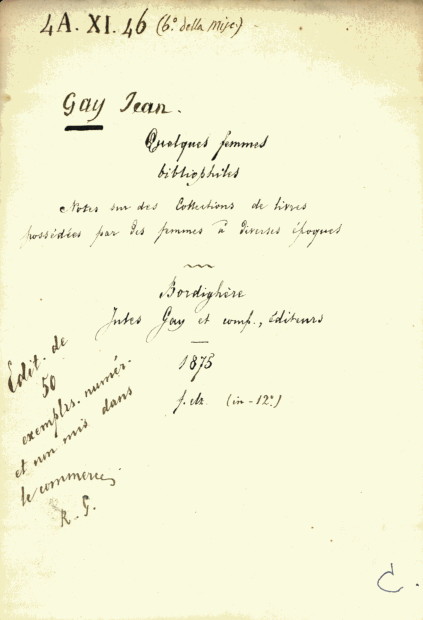 4A. XI. 46 (6° della Misc.)
Gay Jean.
Quelques femmes
bibliophiles
Notes sur des Collections de livres
possédées par des femmes à diverses époques
Bordighère
Jules Gay et comp., éditeurs
1875
(in-12°)
Édit. de
50
exemplrs. numér.
et non mis dans
le commerce
R. G.
C.